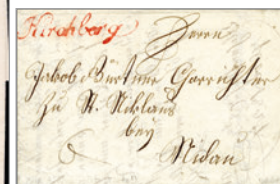 Kirchberg
Herrn
Jakob Gorrichter
zu St. Niklaus
bey
Nidau